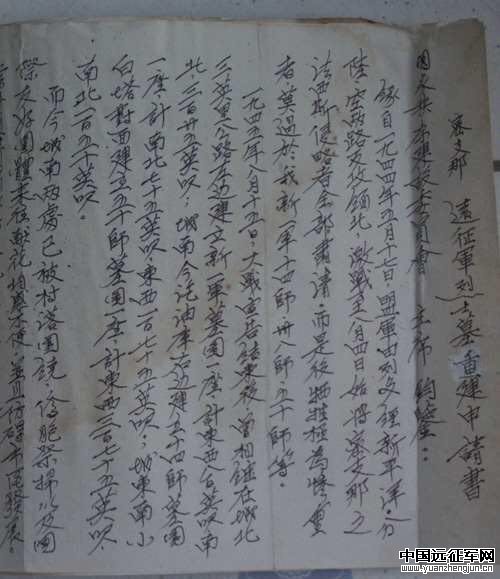 密支那 遠征軍列士墓重建申請書
國民共和建設委員會 主席鈞鑒:
緣自一九四四年五月十七日,盟軍由列多經新平洋,分
陸空兩路反攻緬北,激戰至八月四日始將密支那之
法西斯侵略者全部肅清,而是役牺牲極為惨重
者莫過於我新一軍十四師卅八師,五十師等。
一九四五年八月十五日,大戰宣告結束後,曾相继在城北
三英里公路左边建立新一軍墓園一座,計東西八百英呎,南
北三百廿五英呎,城南今託油庫右边建五十四師墓園
一座,計南北七十五英呎,東西一百七十五英呎;城東南小
白塔對面建立五十師墓園一座,計東西三百七十五英呎,
南北一百五十英呎。
而今城南两處已被村落圍繞,
祭友好團體來往献花均感不便,並且防碍市區發展。
中国远征军网
www.yuanzhengjun.cn